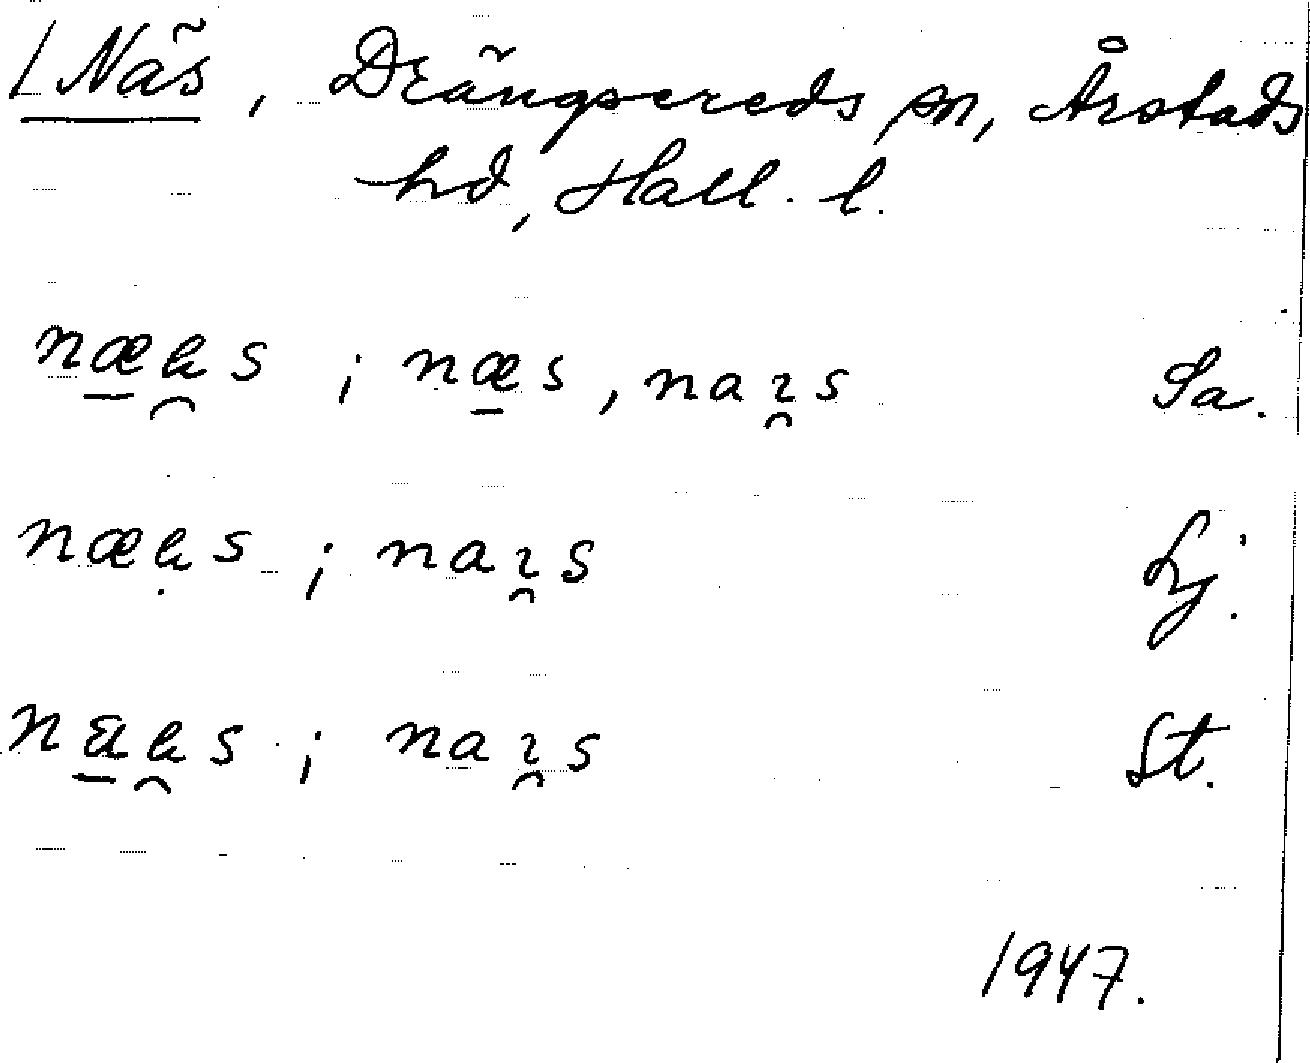 / Näs, Drängsereds sn, Årstads
hd, Hall. l.
næ̲a̯s ; næ̲s, naɩ̯s Sa.
næạs ; naɩ̯s Lj.
na̲a̯s ; naɩ̯s St.
1947.